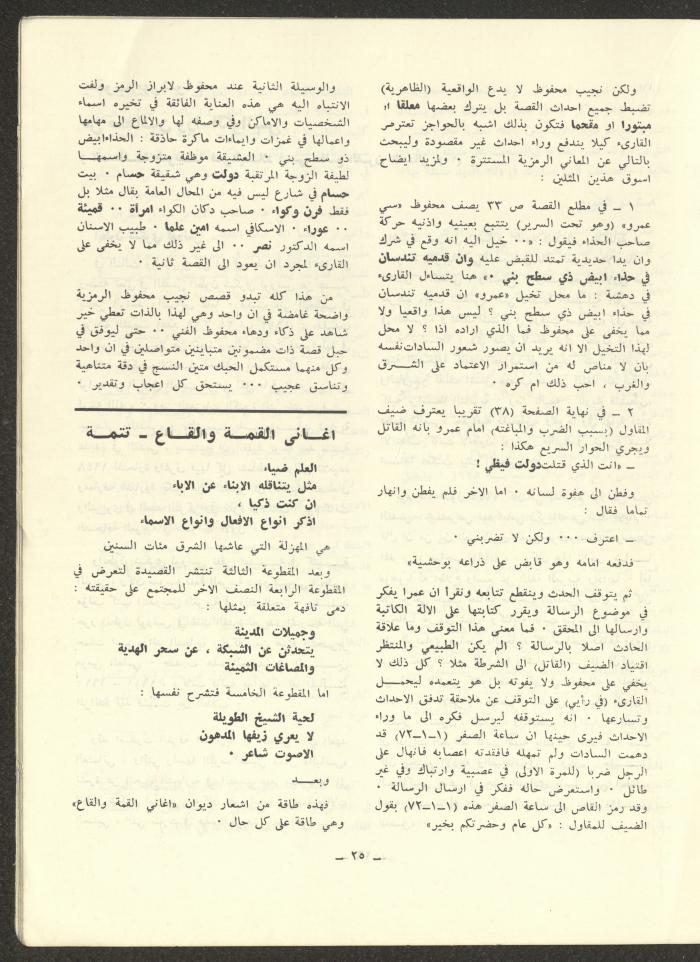 ولكن نجيب محفوظ لا يدع الواقعية (الظاهرية)
تضبط جميع احداث القصة بل يترك بعضها معلقا او
مبتورا او مقحما فتكون بذلك اشبه بالحواجز تعترض
القارىء كيلا يندفع وراء احداث غير مقصودة وليبحث
بالتالي عن المعاني الرمزية المستترة ٠ ولمزيد ايضاح
اسوق هذين المثلين :
١ ــ في مطلع القصة ص ٣٣ يصف محفوظ «سي
عمرو» (وهو تحت السرير) يتتبع بعينيه واذنيه حركة
صاحب الحذاء فيقول : «٠٠ خيل اليه انه وقع في شرك
وان يدا حديدية تمتد للقبض عليه وان قدميه تندسان
في حذاء ابيض ذي سطح بني ٠» هنا يتساءل القارىء
في دهشة : ما محل تخيل «عمرو» ان قدميه تندسان
في حذاء ابيض ذي سطح بني ؟ ليس هذا واقعيا ولا
مما يخفى على محفوظ فما الذي اراده اذا ؟ لا محل
لهذا التخيل الا انه يريد ان يصور شعور السادات نفسه
بان لا مناص له من استمرار الاعتماد على الشــرق
والغرب ، احب ذلك ام كره ٠
٢ ــ في نهاية الصفحة (٣٨) تقريبا يعترف ضيف
المقاول (بسبب الضرب والمباغته) امام عمرو بانه القاتل
ويجري الحوار السريع هكذا :
ــ «انت الذي قتلت دولت فيظي !
وفطن الى هفوة لسانه ٠ اما الاخر فلم يفطن وانهار
تماما فقال :
ــ اعترف ٠٠٠ ولكن لا تضربني ٠
فدفعه امامه وهو قابض على ذراعه بوحشية»
ثم يتوقف الحدث وينقطع تتابعه ونقرأ ان عمرا يفكر
في موضوع الرسالة ويقرر كتابتها على الالة الكاتبة
وارسالها الى المحقق ٠ فما معنى هذا التوقف وما علاقة
الحادث اصلا بالرسالة ؟ الم يكن الطبيعي والمنتظر
اقتياد الضيف (القاتل) الى الشرطة مثلا ؟ كل ذلك لا
يخفى على محفوظ ولا يفوته بل هو يتعمده ليحمــل
القارىء (في رأيي) على التوقف عن ملاحقة تدفق الاحداث
وتسارعها ٠ انه يستوقفه ليرسل فكره الى ما وراء
الاحداث فيرى حينها ان ساعة الصفر (١ــ١ــ٧٢) قد
دهمت السادات ولم تمهله فافقدته اعصابه فانهال على
الرجل ضربا (للمرة الاولى) في عصبية وارتباك وفي غير
طائل ٠ واستعرض حاله ففكر في ارسال الرسالة ٠
وقد رمز القاص الى ساعة الصفر هذه (١ــ١ــ٧٢) بقول
الضيف للمقاول : «كل عام وحضرتكم بخير»
والوسيلة الثانية عند محفوظ لابراز الرمز ولفت
الانتباه اليه هي هذه العناية الفائقة في تخيره اسماء
الشخصيات والاماكن وفي وصفه لها والالماع الى مهامها
واعمالها في غمزات وايماءات ماكرة حاذقة : الحذاء ابيض
ذو سطح بني ٠ العشيقة موظفة متزوجة واسمهــا
لطيفة الزوجة المرتقبة دولت وهي شقيقة حسام ٠ بيت
حسام في شارع ليس فيه من المحال العامة بقال مثلا بل
فقط فرن وكواء ٠ صاحب دكان الكواء امرأة ٠٠ قميئة
٠٠ عوراء ٠ الاسكافي اسمه امين علما ٠ طبيب الاسنان
اسمه الدكتور نصر ٠٠ الى غير ذلك مما لا يخفى على
القارىء لمجرد ان يعود الى القصة ثانية ٠
من هذا كله تبدو قصص نجيب محفوظ الرمزية
واضحة غامضة في ان واحد وهي لهذا بالذات تعطي خير
شاهد على ذكاء ودهاء محفوظ الفني ٠٠ حتى ليوفق في
حبل قصة ذات مضمونين متباينين متواصلين في ان واحد
وكل منهما مستكمل الحبك متين النسج في دقة متناهية
وتناسق عجيب ٠٠٠ يستحق كل اعجاب وتقدير ٠
اغــانى القمــة والقــاع ــ تتمــة
العلم ضياء
مثل يتناقله الابناء عن الاباء
ان كنت ذكيا ،
اذكر انواع الافعال وانواع الاسماء
هي المهزلة التي عاشها الشرق مئات السنين
وبعد المقطوعة الثالثة تنتشر القصيدة لتعرض في
المقطوعة الرابعة النصف الاخر للمجتمع على حقيقته :
دمى تافهة متعلقة بمثلها :
وجميلات المدينة
يتحدثن عن الشبكة ، عن سحر الهدية
والمصاغات الثمينة
اما المقطوعة الخامسة فتشرح نفسها :
لحية الشيخ الطويلة
لا يعري زيفها المدهون
الاصوت شاعر ٠
وبعــد
فهذه طاقة من اشعار ديوان «اغاني القمة والقاع»
وهي طاقة على كل حال ٠
ــ ٢٥ ــ